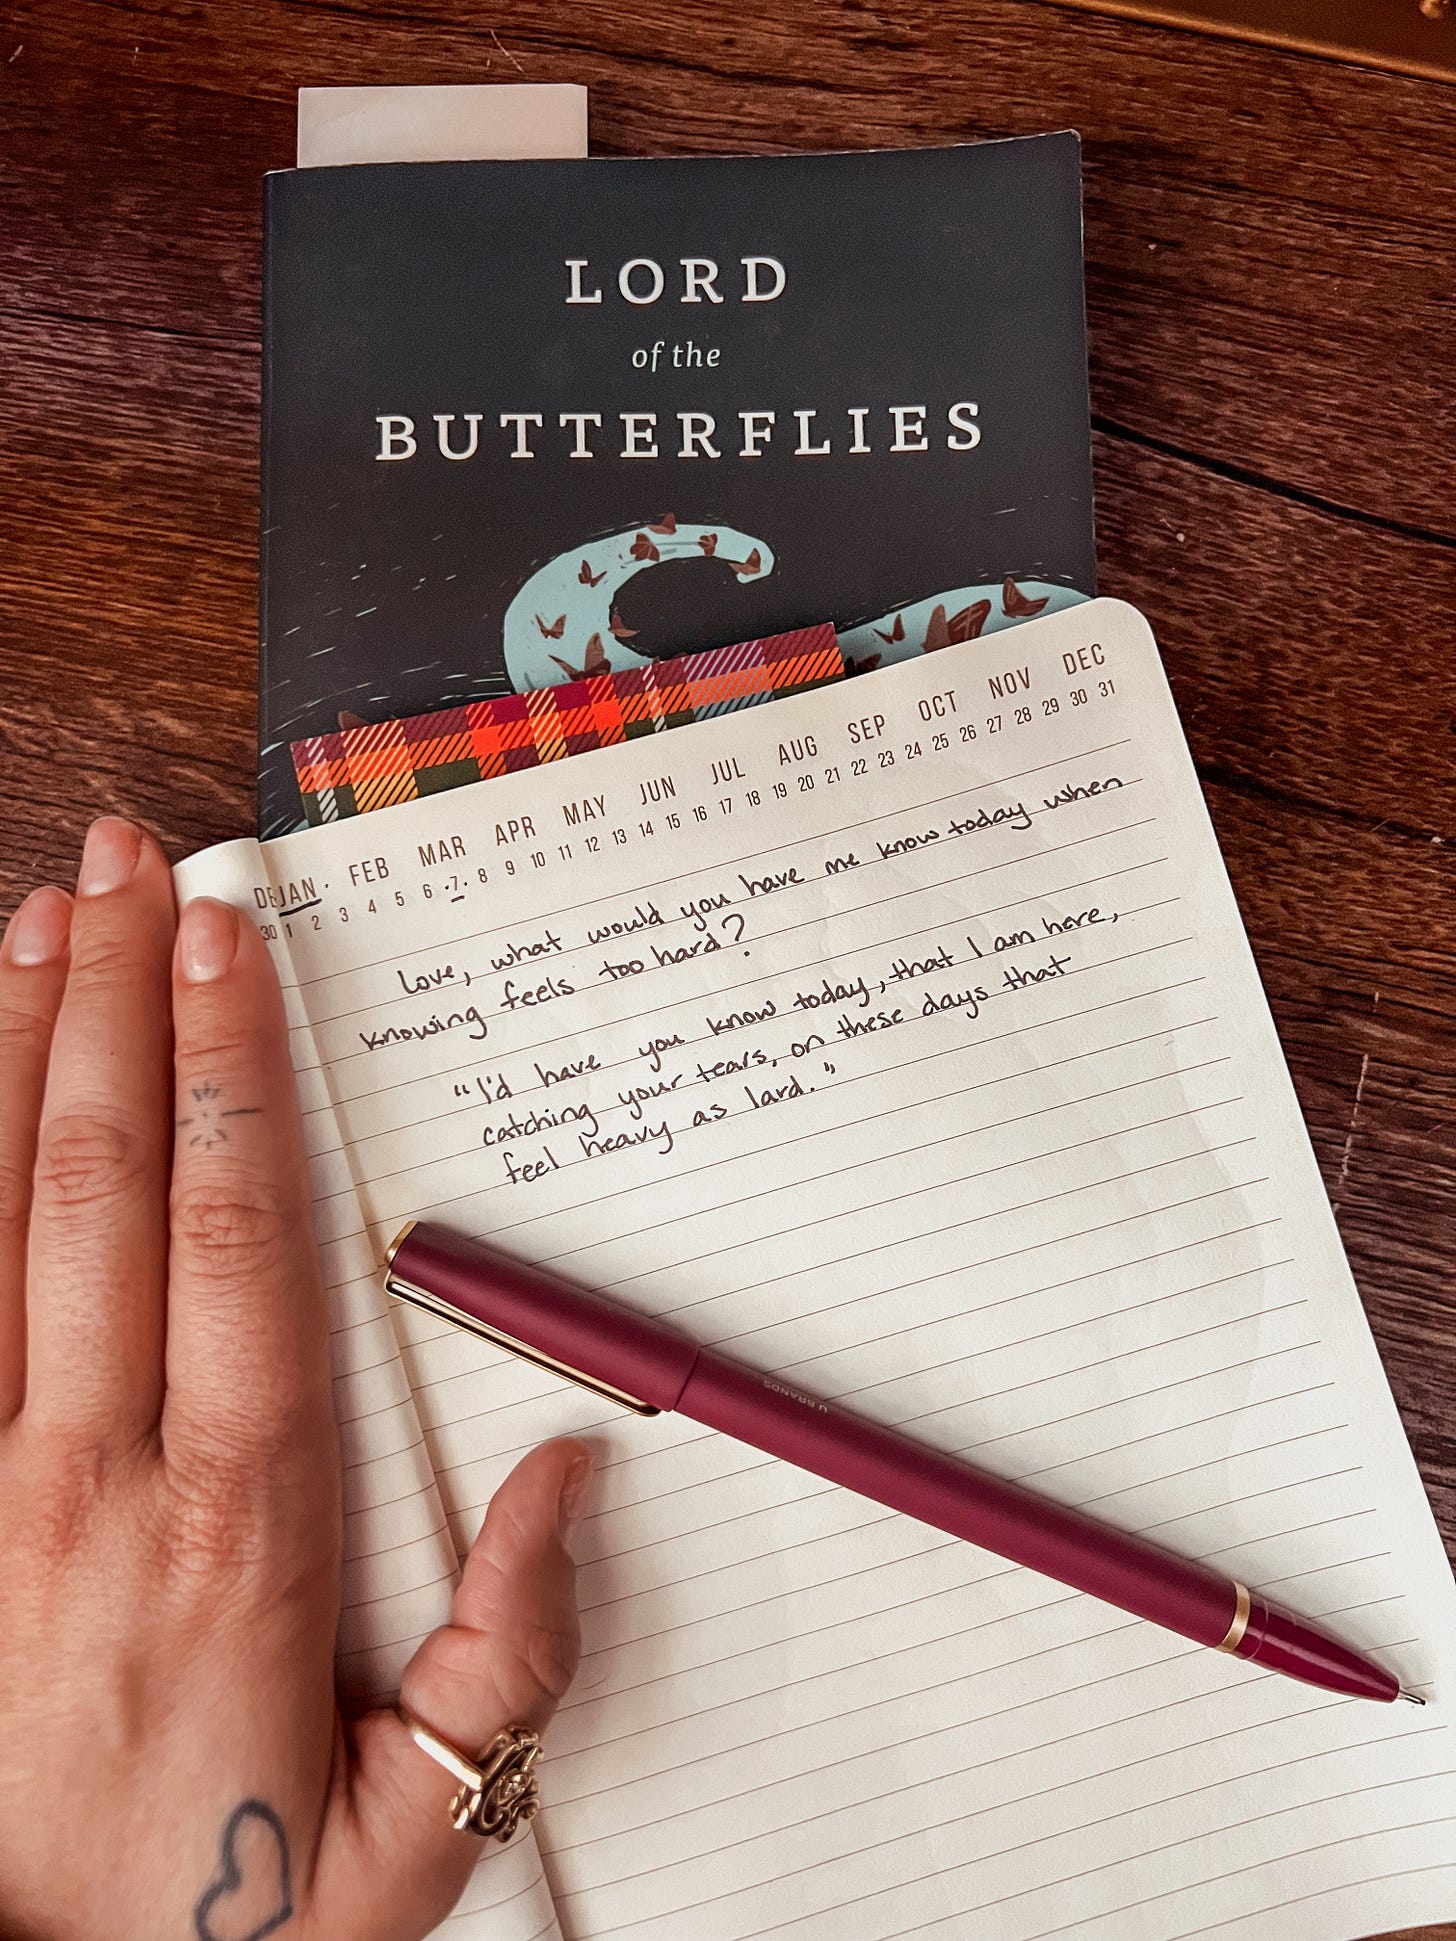 LORD
of the
BUTTERFLIES
DE JAN FEB MAR APR MAY JUN JUL AUG SEP OCT NOV DEC
30 1 2 3 4 5 6 7 8 9 10 11 12 13 14 15 16 17 18 19 20 21 22 23 24 25 26 27 28 29 30 31
love, what would you have me know today when
knowing feels too hard?
"I'd have you know today, that I am here,
catching your tears, on these days that
feel heavy as lard."
U BRANDS